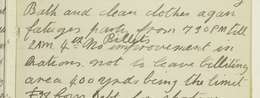 Bath and clean clothes again
fatigue party from 7 30 PM till
2 AM 4th Billets No improvement in
rations. not to leave billeting
area 400 yards being the limit